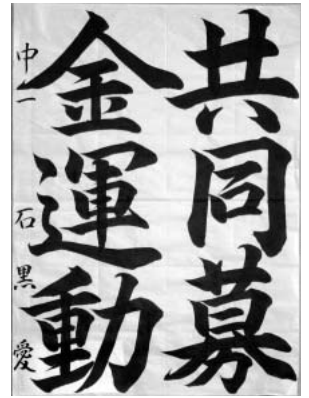 共同募
金運動
中一 石黒愛